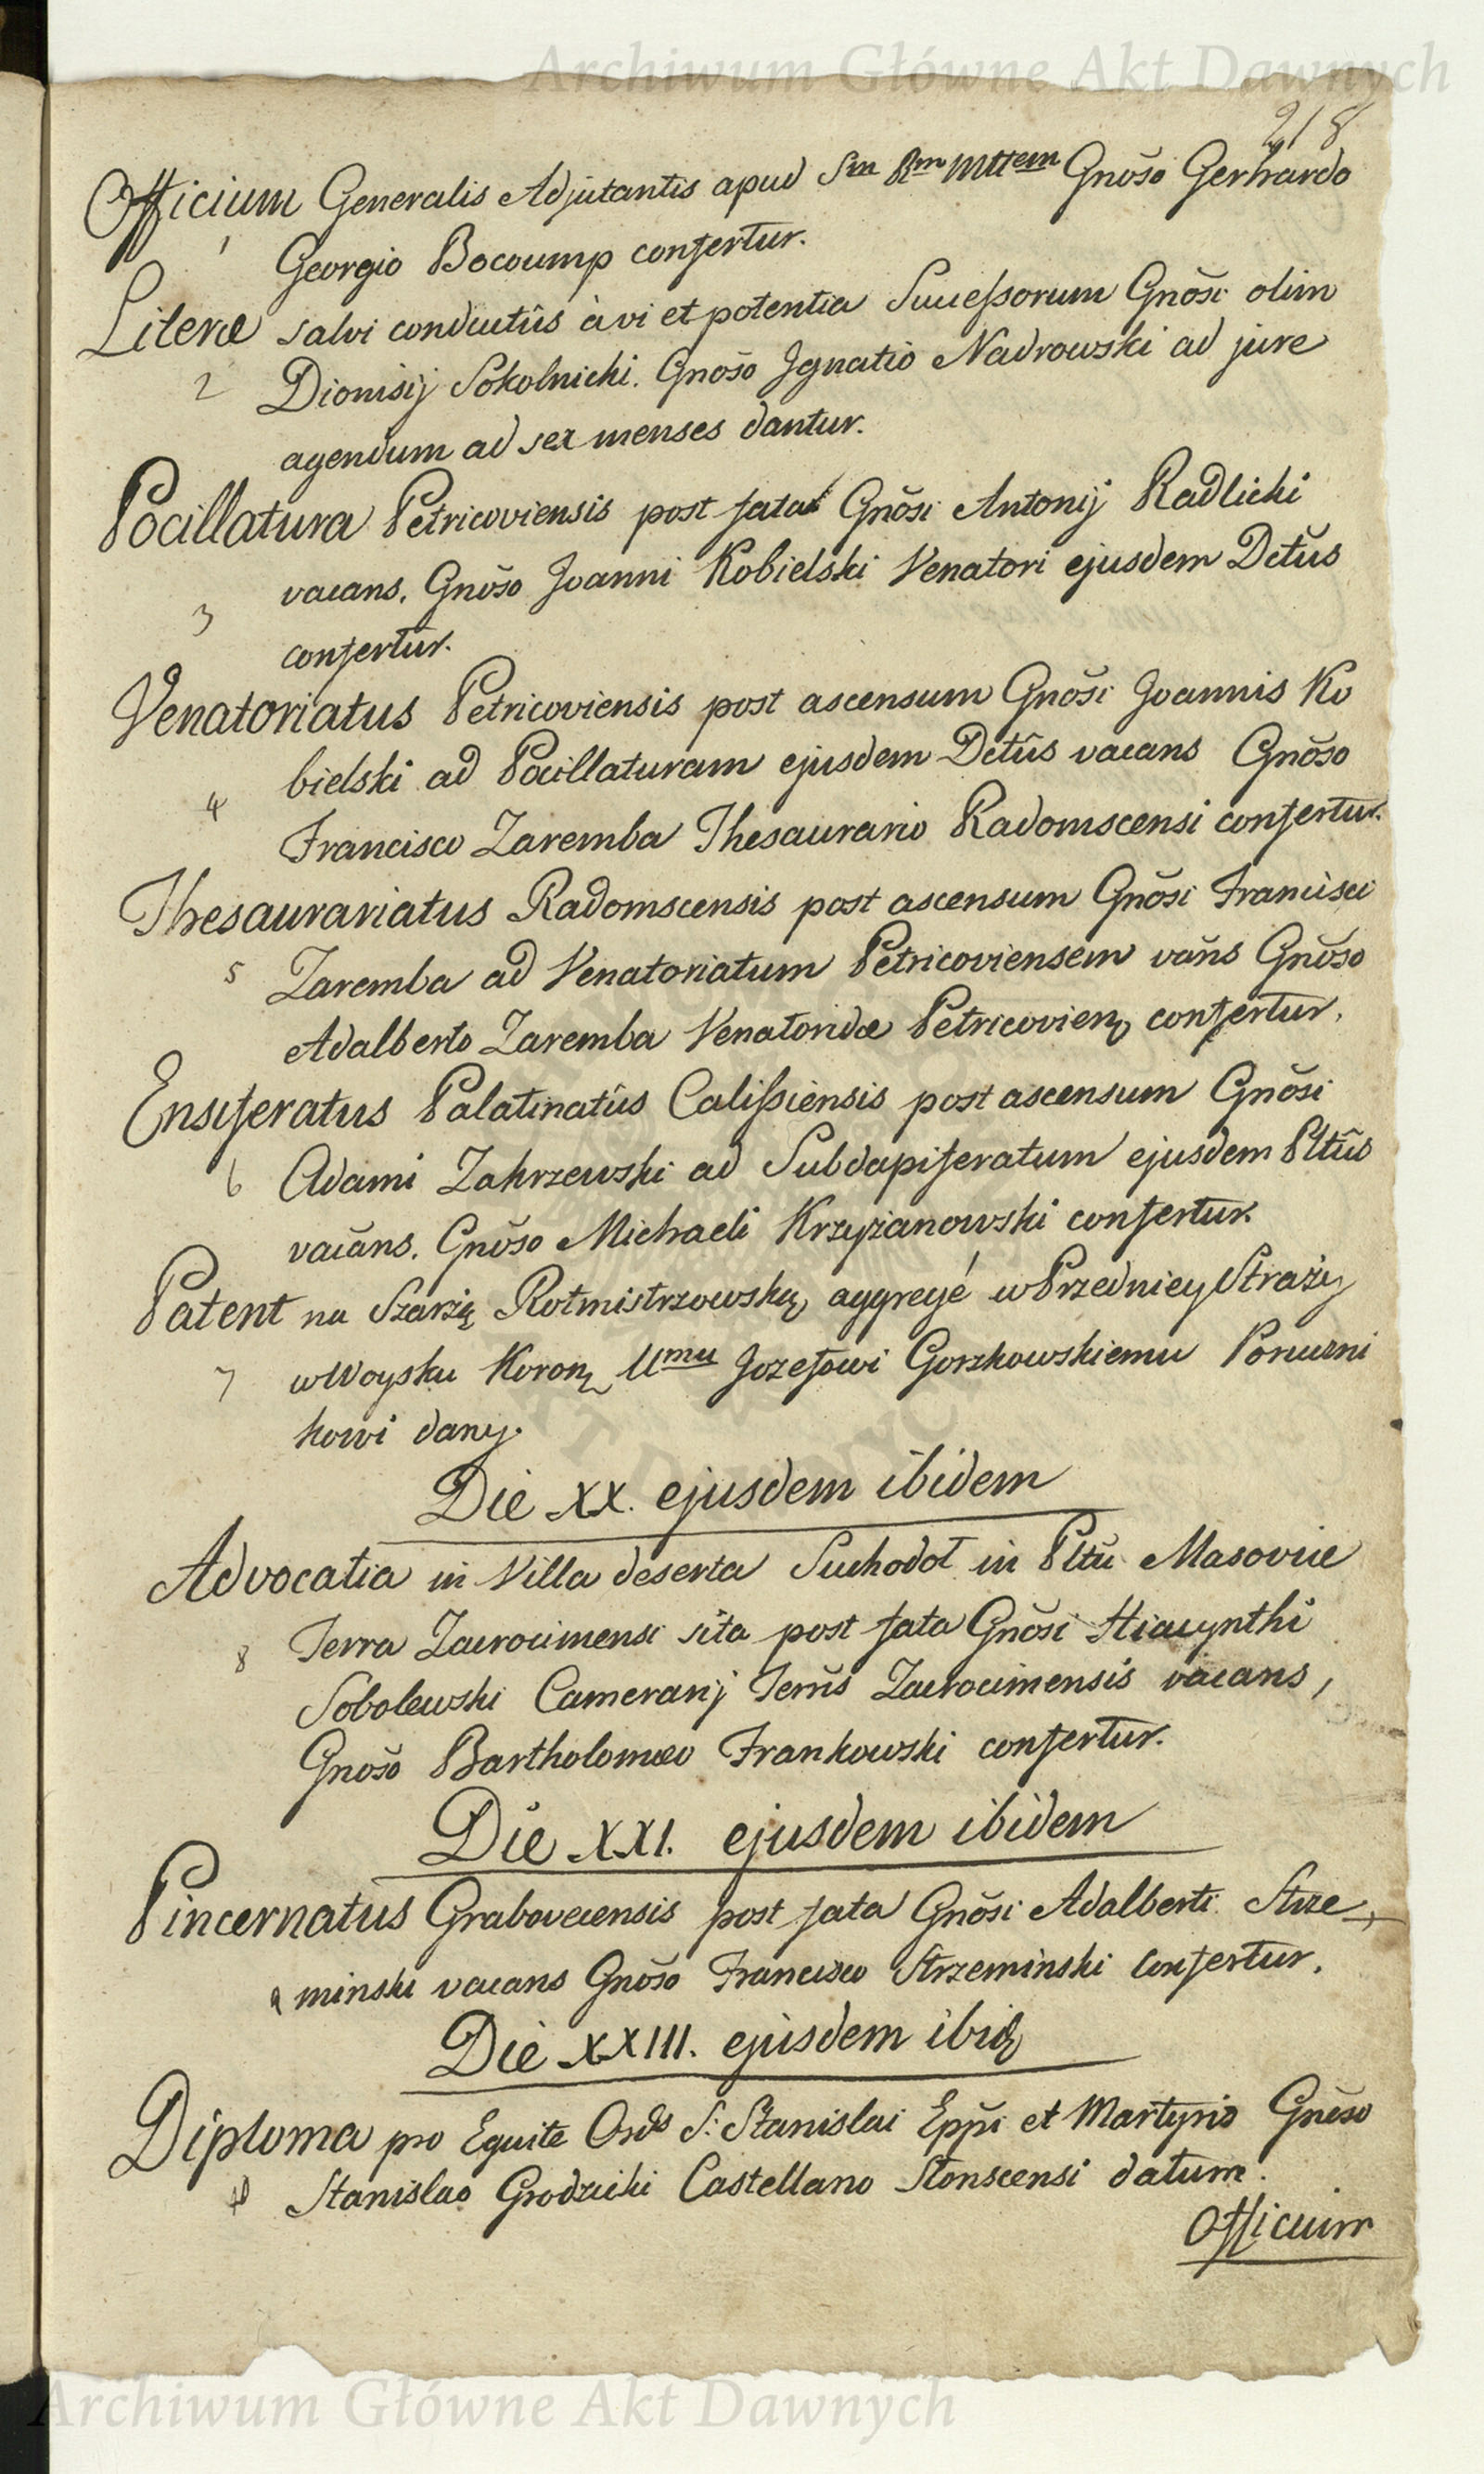 Archiwum Główne Akt Dawnych
218
Officium Generalis Adjutantis apud Sm Rm Mttem Gnőso Gerhardo
1
Georgio Bocoump confertur.
Literæ salvi conductûs à vi et potentia Successorum Gnősi olim
2 Dionisij Sokolnicki. Gnőso Ignatio Nadrowski ad jure
agendum ad sex menses dantur.
Pocillatura Petricoviensis post fata Gnősi Antonij Radlicki
vacans. Gnőso Joanni Kobielski Venatori ejusdem Dctûs
3
confertur.
Venatoriatus Petricoviensis post ascensum Gnősi Joannis Ko
bielski ad Pocillaturam ejusdem Dctûs vacans Gnőso
4
Francisco Zaremba Thesaurario Radomscensi confertur.
Thesaurariatus Radomscensis post ascensum Gnősi Francisci
5 Zaremba ad Venatoriatum Petricoviensem vańs Gnőso
Adalberto Zaremba Venatoridæ Petricovien confertur.
Ensiferatus Palatinatûs Calissiensis post ascensum Gnősi
6 Adami Zakrzewski ad Subdapiferatum ejusdem Pltûs
vacans. Gnőso Michaeli Krzyżanowski confertur.
Patent na Szarżę Rotmistrzowską aggregé w Przedniey Straży
7 w Woysku Koron Umu Jozefowi Gorzkowskiemu Poruczni
kowi dany.
Die XX. ejusdem ibidem
Advocatia in Villa deserta Suchodoł in Pltu Masoviæ
8 Terra Zacrocimensi sita post fata Gnősi Hiacynthi
Sobolewski Camerarij Terrűs Zacrocimensis vacans,
Gnőso Bartholomæo Frankowski confertur.
Die XXI. ejusdem ibidem
Pincernatus Grabovecensis post fata Gnősi Adalberti Strze
9 minski vacans Gnőso Francisco Strzeminski confertur.
Die XXIII. ejusdem ibid
Diploma pro Equite Ordis S: Stanislai Eppi et Martyris Gnőso
10 Stanislao Grodzicki Castellano Słonscensi datum.
Officium
Archiwum Główne Akt Dawnych